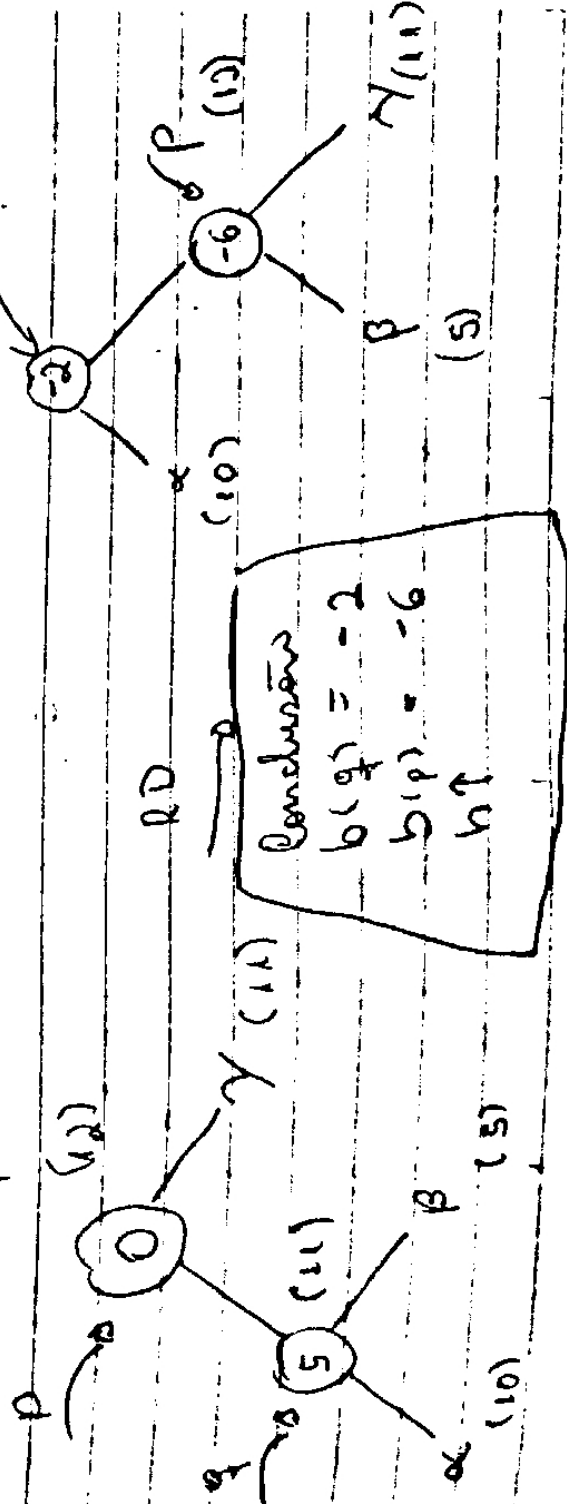 P
(12)
0
q
5
(11)
γ (11)
α
(10)
β
(5)
RD
Conclusão
b(q) = -2
b(p) = -6
h↑
-2
α
(10)
P
(12)
-6
β
(5)
γ (11)